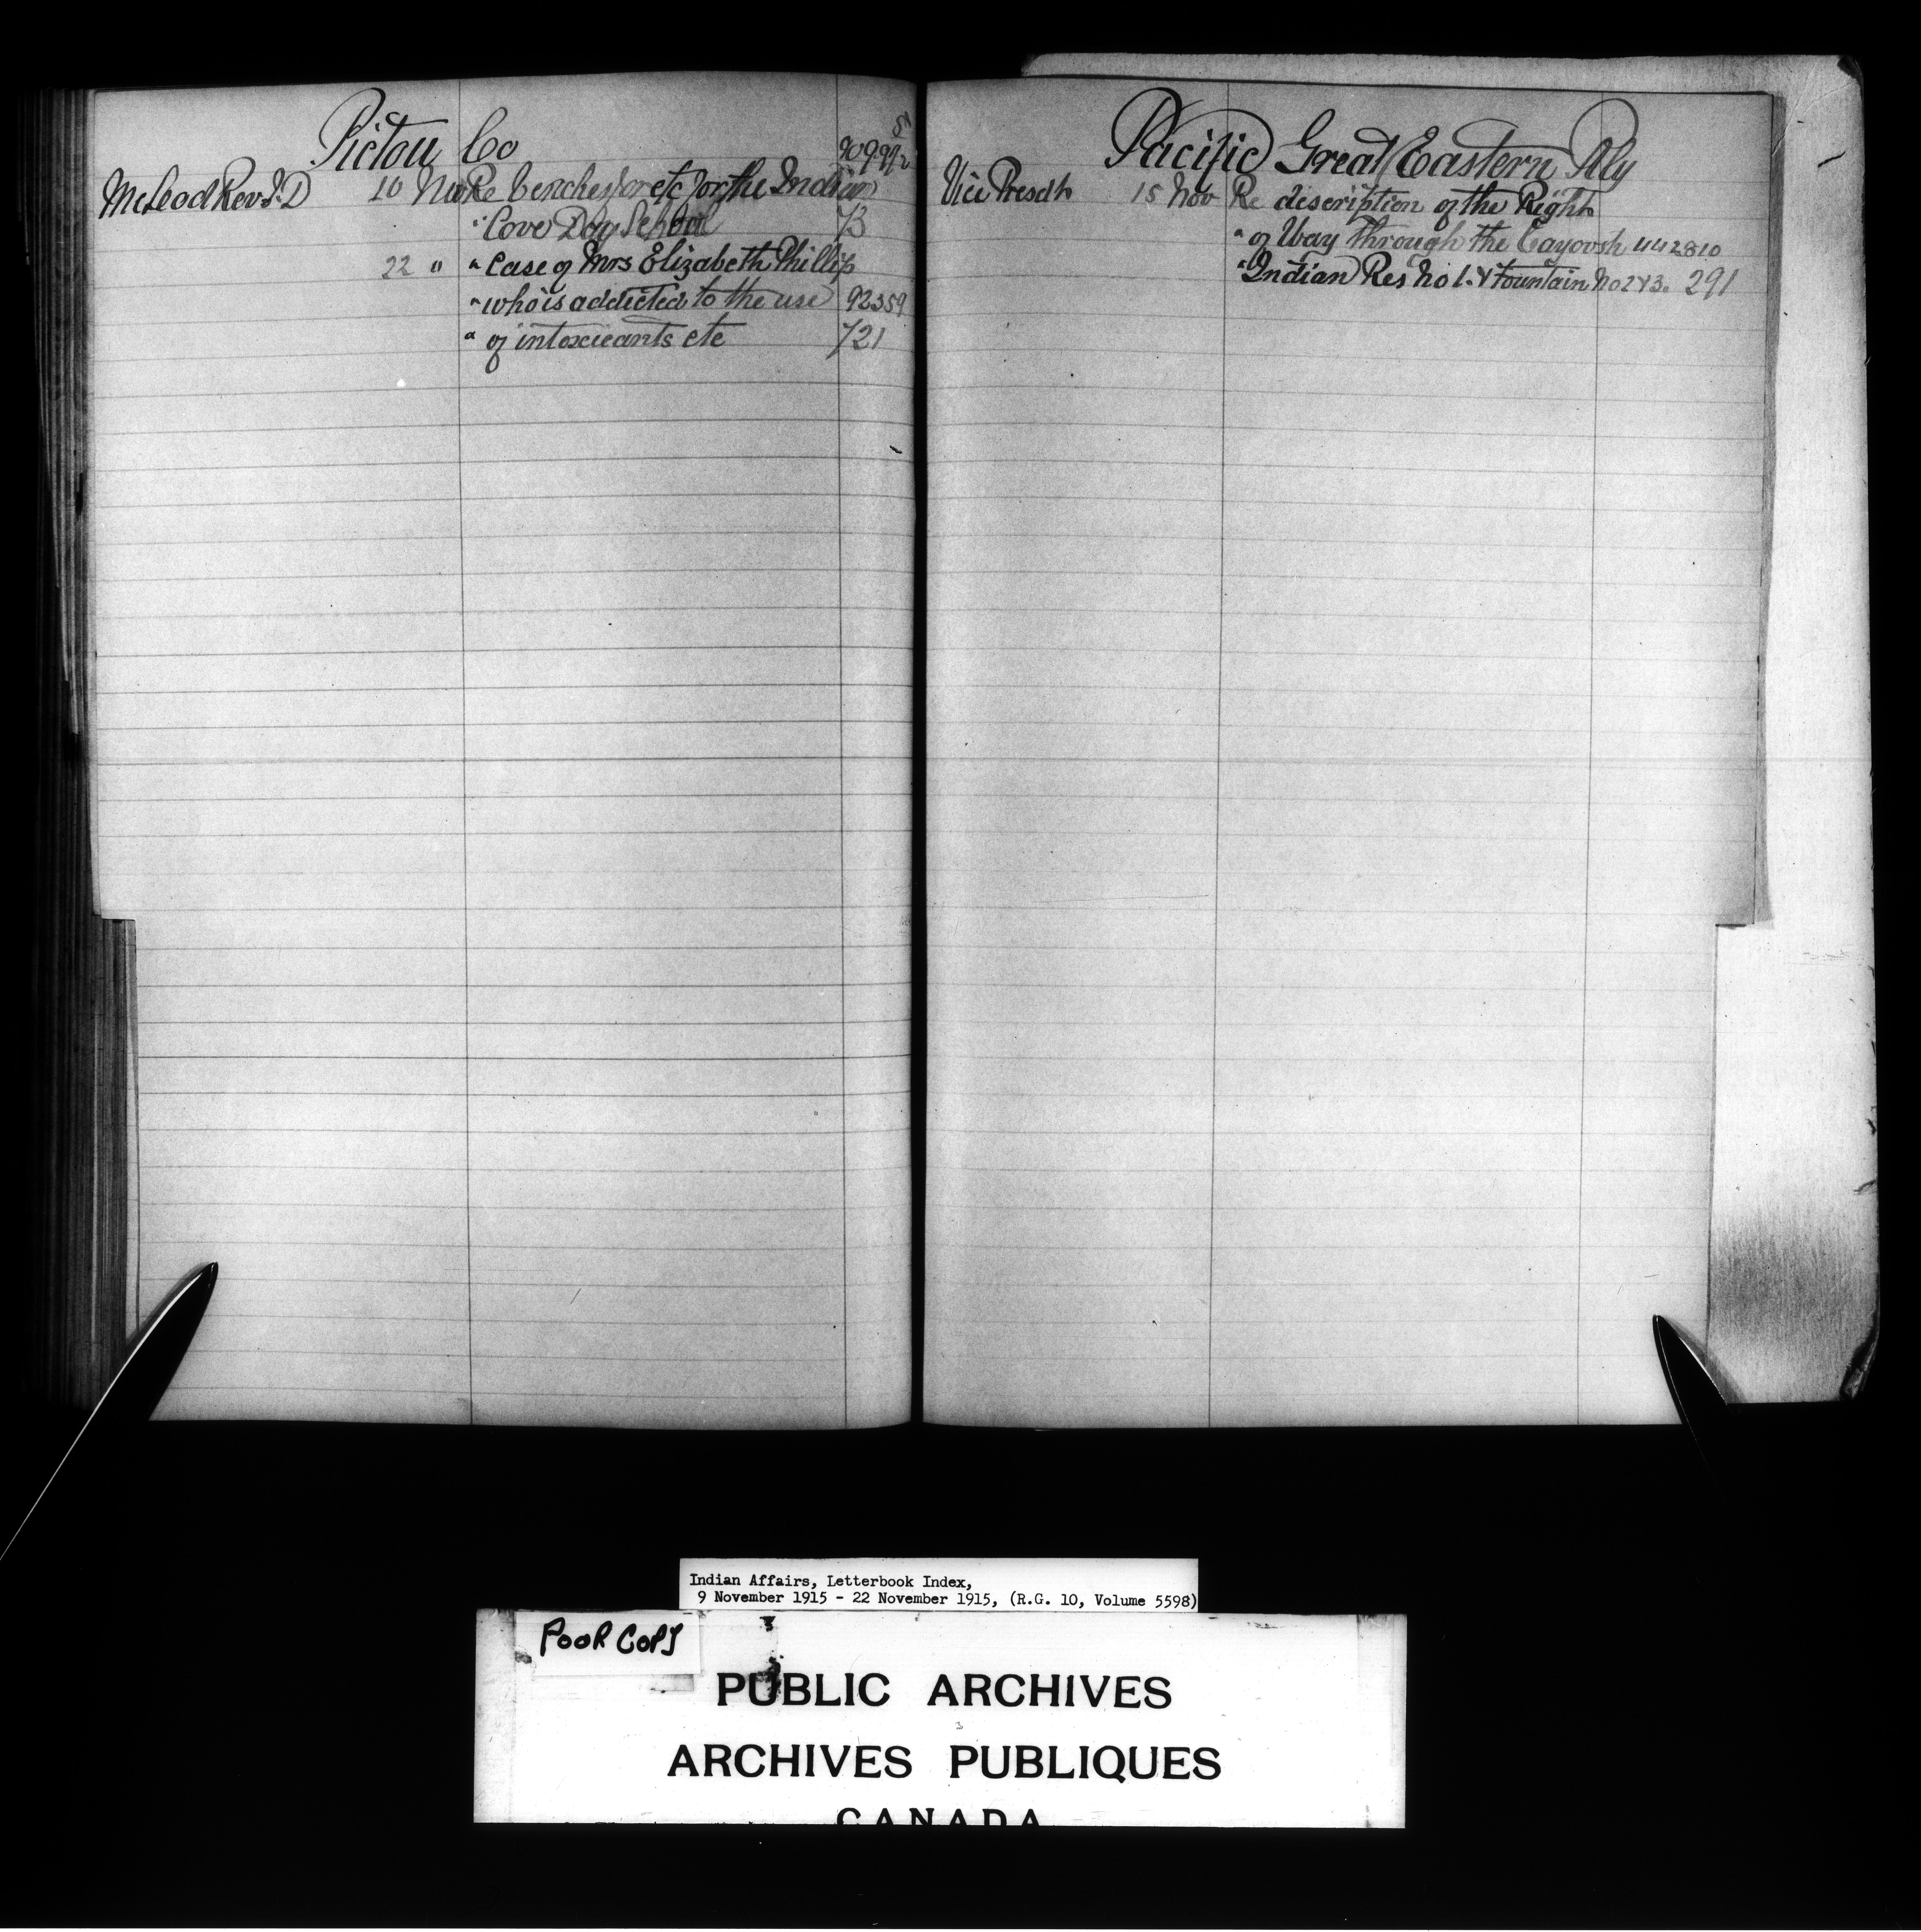 Pictou Co
McLeod Rev J. D 10 Nov Re benches for etc for the Indian
" Cove Day School 73
22 " " Case of Mrs Elizabeth Phillip
" who is addicted to the use 92359
" of intoxicants etc 721
Pacific Great Eastern Rly
Vice Presdt 15 Nov Re discription of the Right
" of Way through the Cayoosh 442810
" Indian Res No 1. & Fountain No 2 & 3. 291
Indian Affairs, Letterbook Index,
9 November 1915 - 22 November 1915, (R.G. 10, Volume 5598)
POOR COPY
PUBLIC ARCHIVES
ARCHIVES PUBLIQUES
CANADA